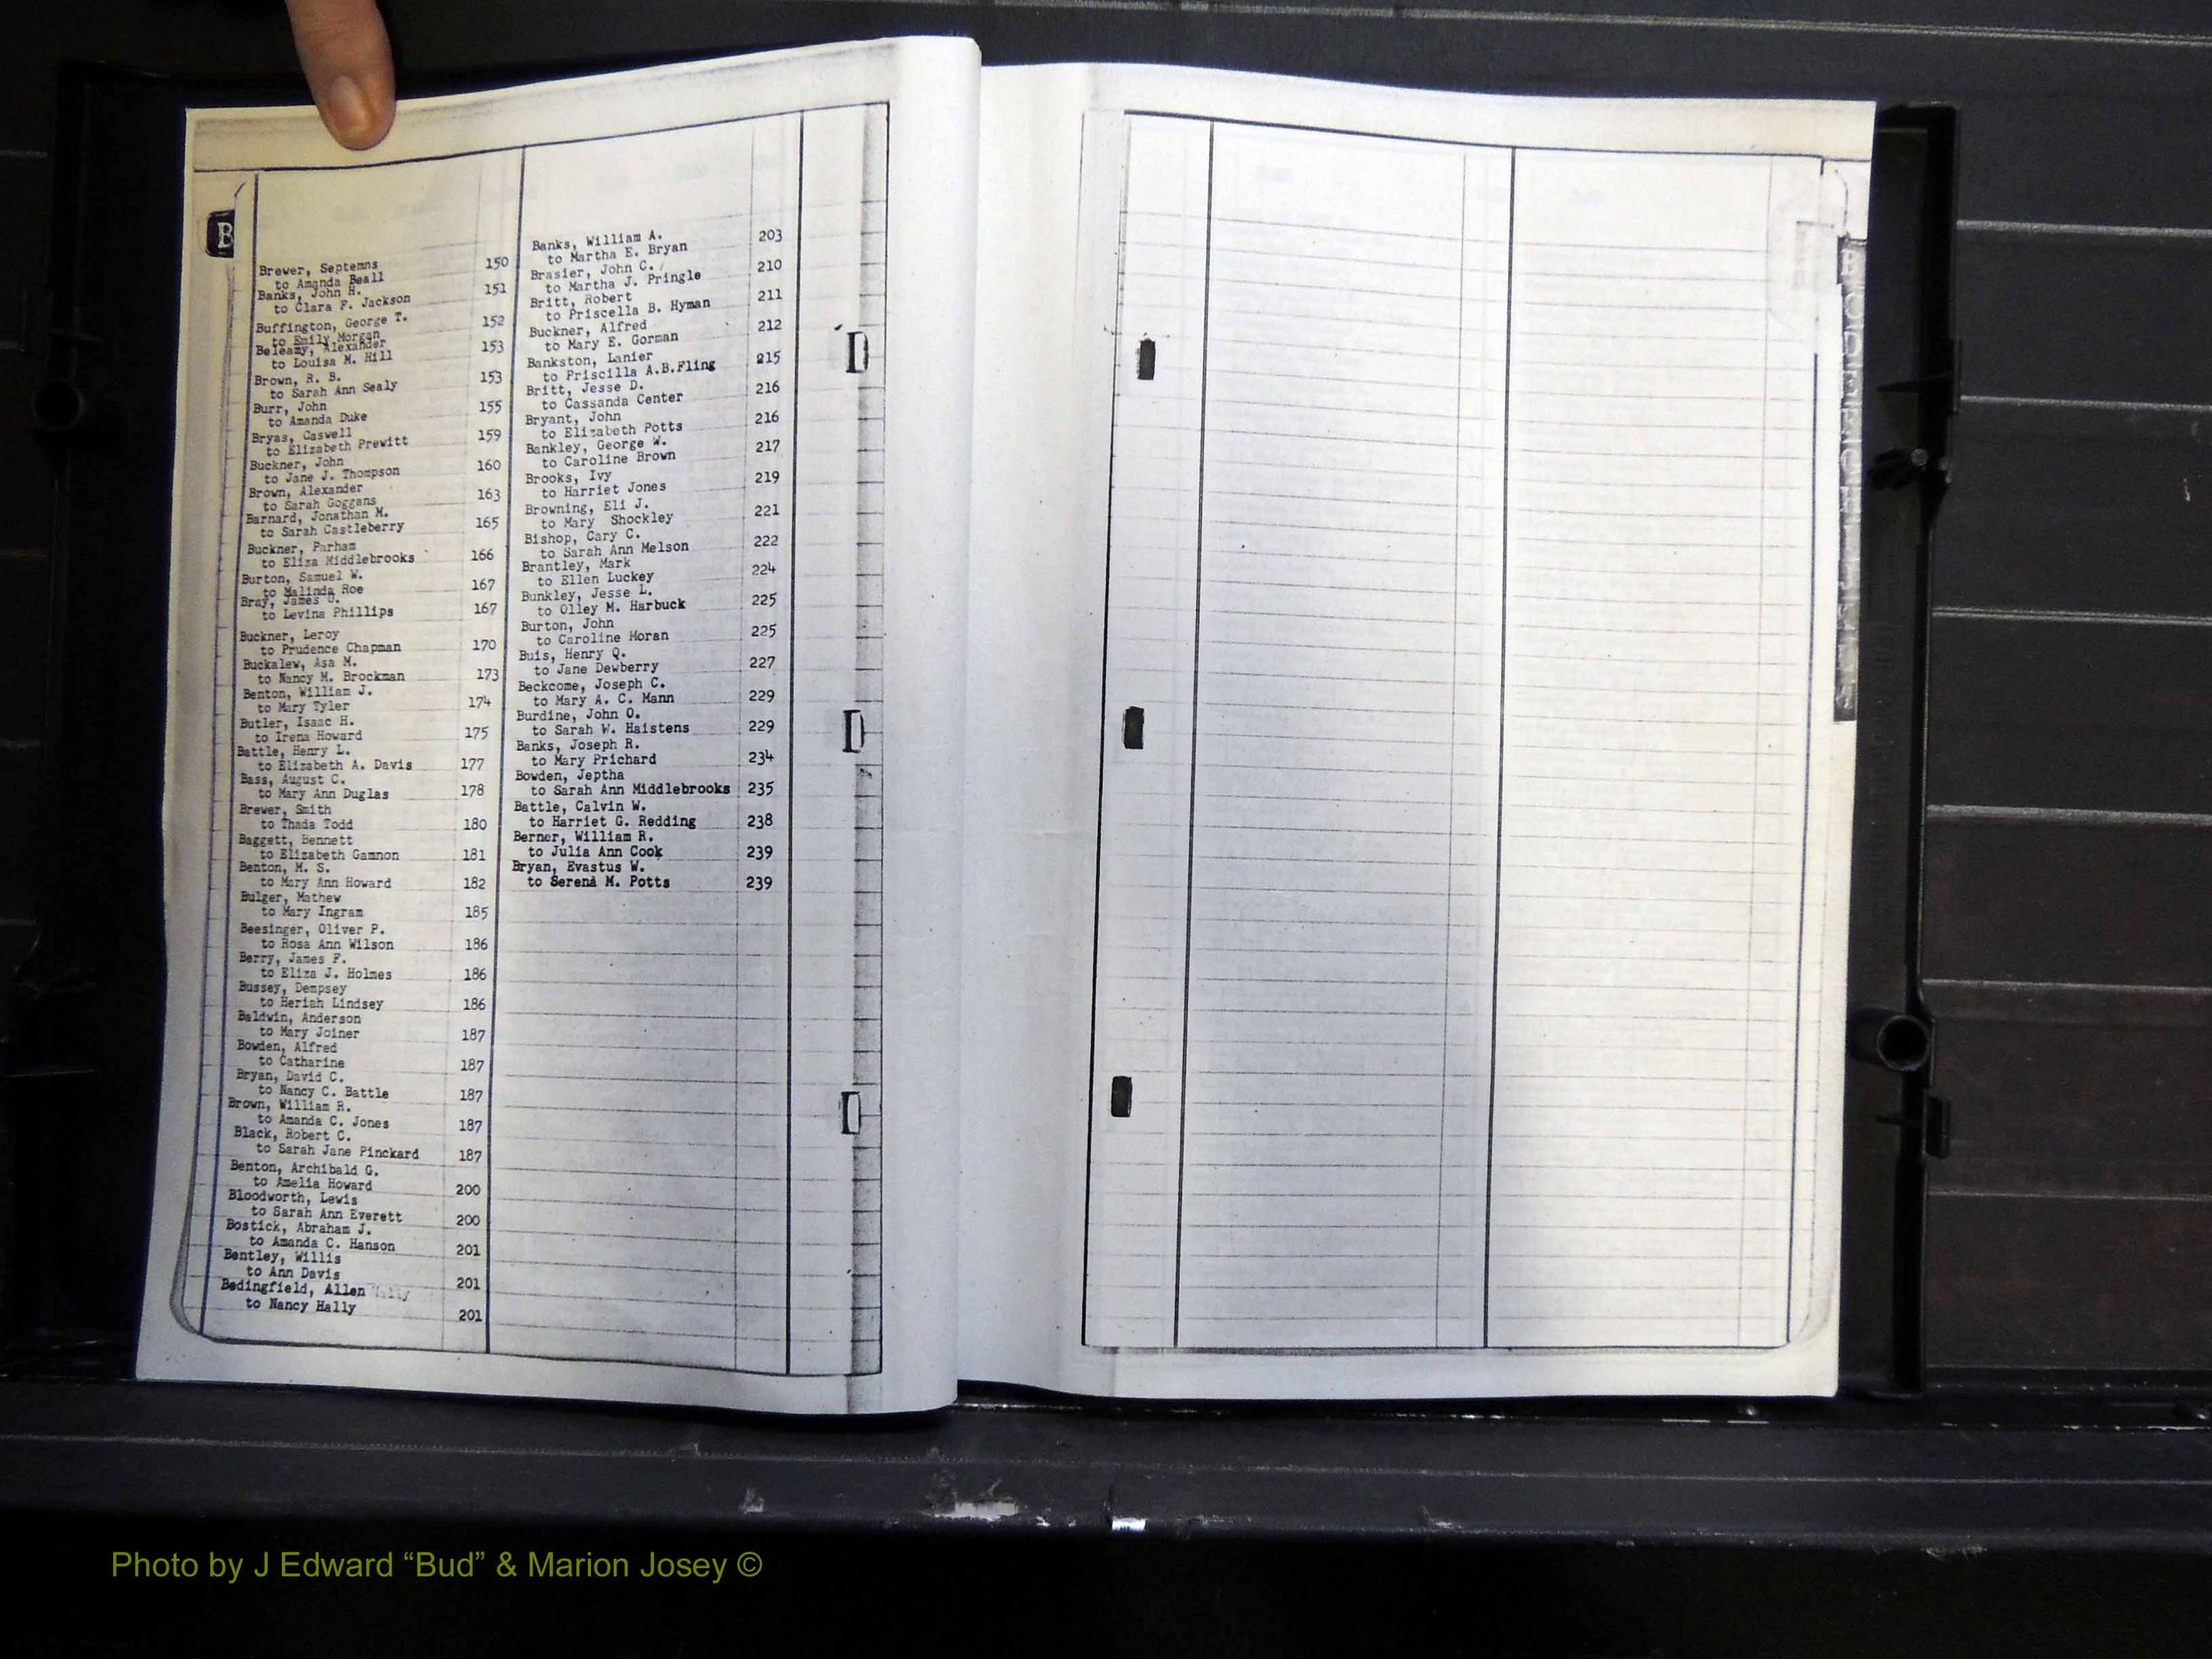 B
Brewer, Septemns
to Amanda Beall 150
Banks, John H.
to Clara F. Jackson 151
Buffington, George T.
to Emily Morgan 152
Beleamy, Alexander
to Louisa M. Hill 153
Brown, R. B.
to Sarah Ann Sealy 153
Burr, John
to Amanda Duke 155
Bryas, Caswell
to Elizabeth Prewitt 159
Buckner, John
to Jane J. Thompson 160
Brown, Alexander
to Sarah Goggans 163
Barnard, Jonathan M.
to Sarah Castleberry 165
Buckner, Parham
to Eliza Middlebrooks 166
Burton, Samuel W.
to Malinda Roe 167
Bray, James
to Levina Phillips 167
Buckner, Leroy
to Prudence Chapman 170
Buckalew, Asa M.
to Nancy M. Brockman 173
Benton, William J.
to Mary Tyler 174
Butler, Isaac H.
to Irena Howard 175
Battle, Henry L.
to Elizabeth A. Davis 177
Bass, August C.
to Mary Ann Duglas 178
Brewer, Smith
to Thada Todd 180
Baggett, Bennett
to Elizabeth Gamnon 181
Benton, M. S.
to Mary Ann Howard 182
Bulger, Mathew
to Mary Ingram 185
Beesinger, Oliver P.
to Rosa Ann Wilson 186
Berry, James F.
to Eliza J. Holmes 186
Bussey, Dempsey
to Heriah Lindsey 186
Baldwin, Anderson
to Mary Joiner 187
Bowden, Alfred
to Catharine 187
Bryan, David C.
to Nancy C. Battle 187
Brown, William R.
to Amanda C. Jones 187
Black, Robert C.
to Sarah Jane Pinckard 187
Benton, Archibald G.
to Amelia Howard 200
Bloodworth, Lewis
to Sarah Ann Everett 200
Bostick, Abraham J.
to Amanda C. Hanson 201
Bentley, Willis
to Ann Davis 201
Bedingfield, Allen
to Nancy Hally 201
Banks, William A. 203
to Martha E. Bryan
Brasier, John C. 210
to Martha J. Pringle
Britt, Robert 211
to Priscella B. Hyman
Buckner, Alfred 212
to Mary E. Gorman
Bankston, Lanier 215
to Priscilla A.B.Fling
Britt, Jesse D. 216
to Cassanda Center
Bryant, John 216
to Elizabeth Potts
Bankley, George W. 217
to Caroline Brown
Brooks, Ivy 219
to Harriet Jones
Browning, Eli J. 221
to Mary Shockley
Bishop, Cary C. 222
to Sarah Ann Melson
Brantley, Mark 224
to Ellen Luckey
Bunkley, Jesse L. 225
to Olley M. Harbuck
Burton, John 225
to Caroline Moran
Buis, Henry Q.
to Jane Dewberry 227
Beckcome, Joseph C.
to Mary A. C. Mann 229
Burdine, John O.
to Sarah W. Haistens 229
Banks, Joseph R.
to Mary Prichard 234
Bowden, Jeptha
to Sarah Ann Middlebrooks 235
Battle, Calvin W.
to Harriet G. Redding 238
Berner, William R.
to Julia Ann Cook 239
Bryan, Evastus W.
to Serena M. Potts 239
Photo by J Edward “Bud” & Marion Josey ©